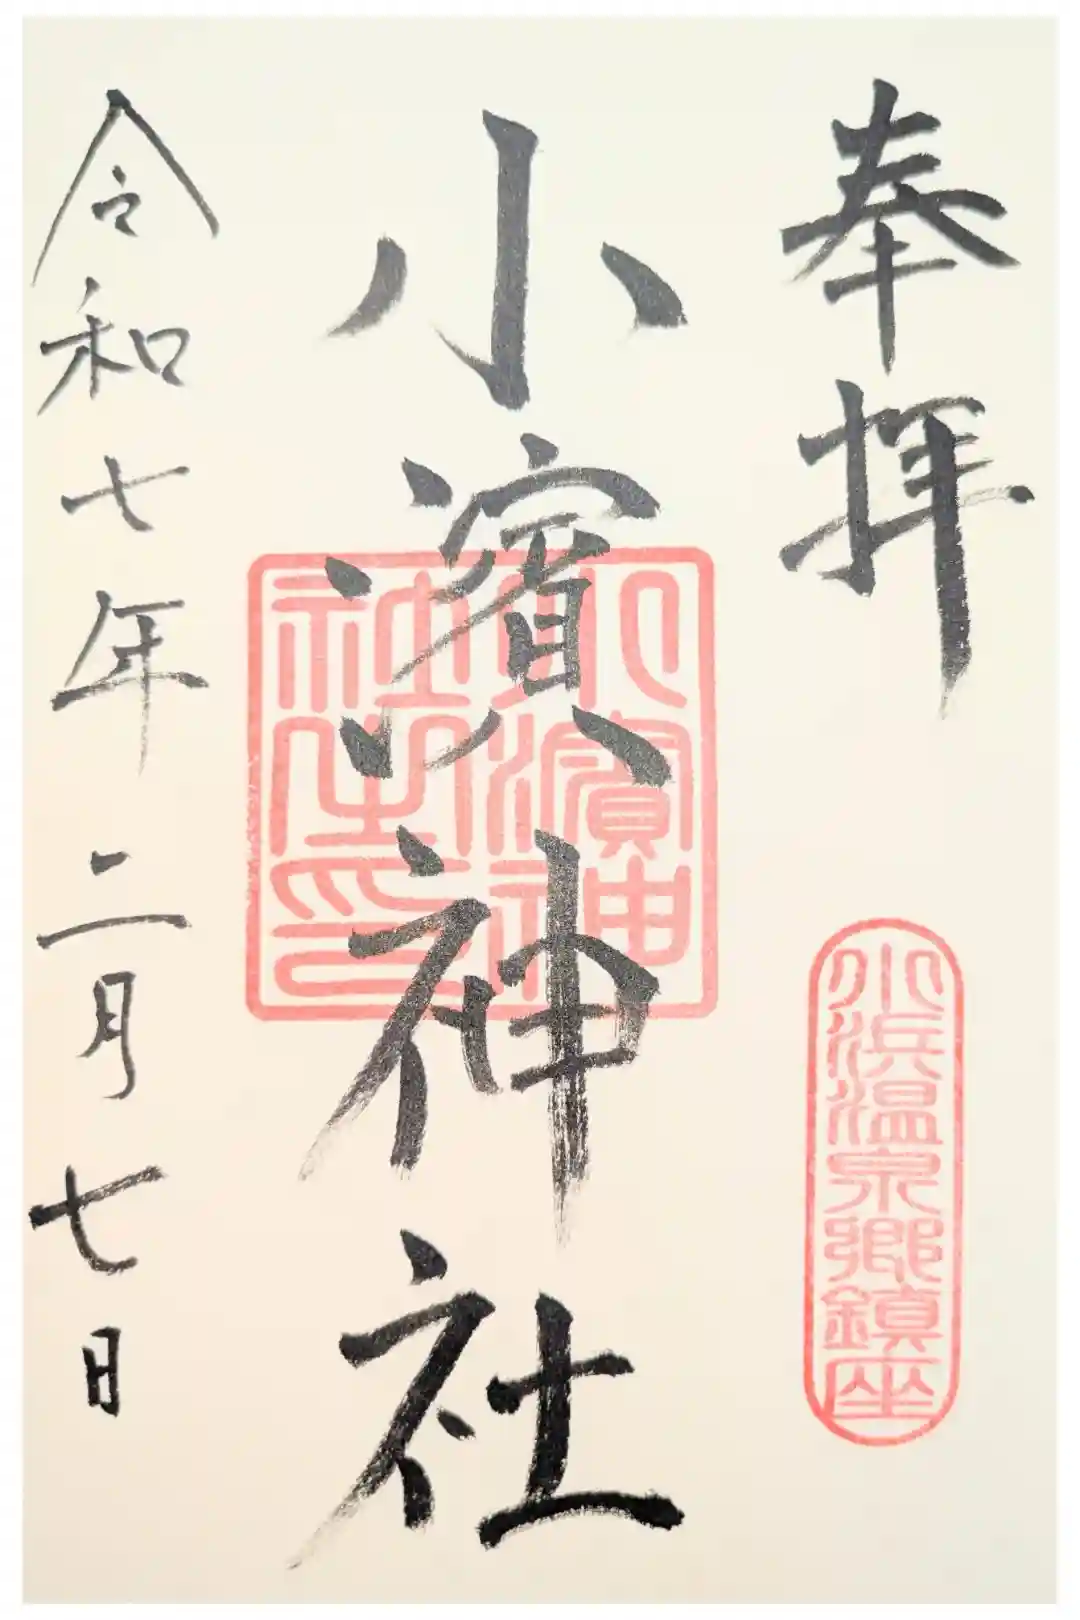 奉拝
小浜温泉郷鎮座
小濱神社
小濱神社之印
令和七年二月七日